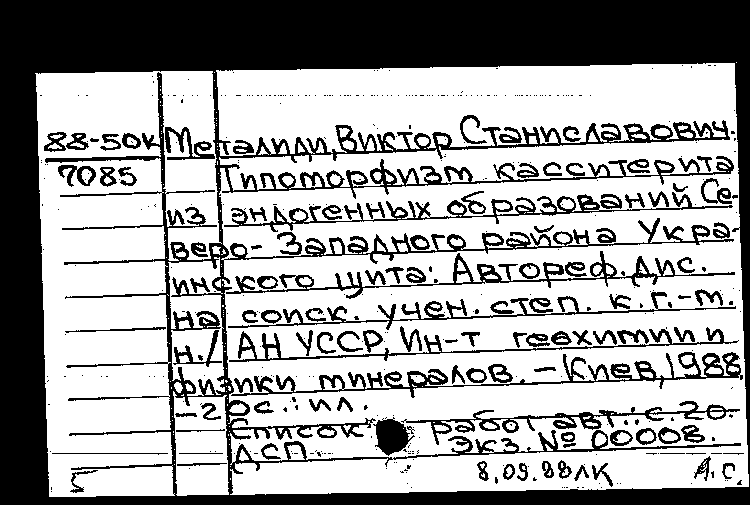 88-50к Металиди, Виктор Станиславович.
7085 Типоморфизм касситерита
из эндогенных образований Се-
веро-Западного района Укра-
инского щита: Автореф. дис.
на соиск. учен. степ. к.г.-м.
н./ АН УССР, Ин-т геохимии и
физики минералов. – Киев, 1988
– 20с.: ил.
Список работ авт.: с. 20.
ДСП. Экз. № 00008.
8.09.88 ЛК А.С.